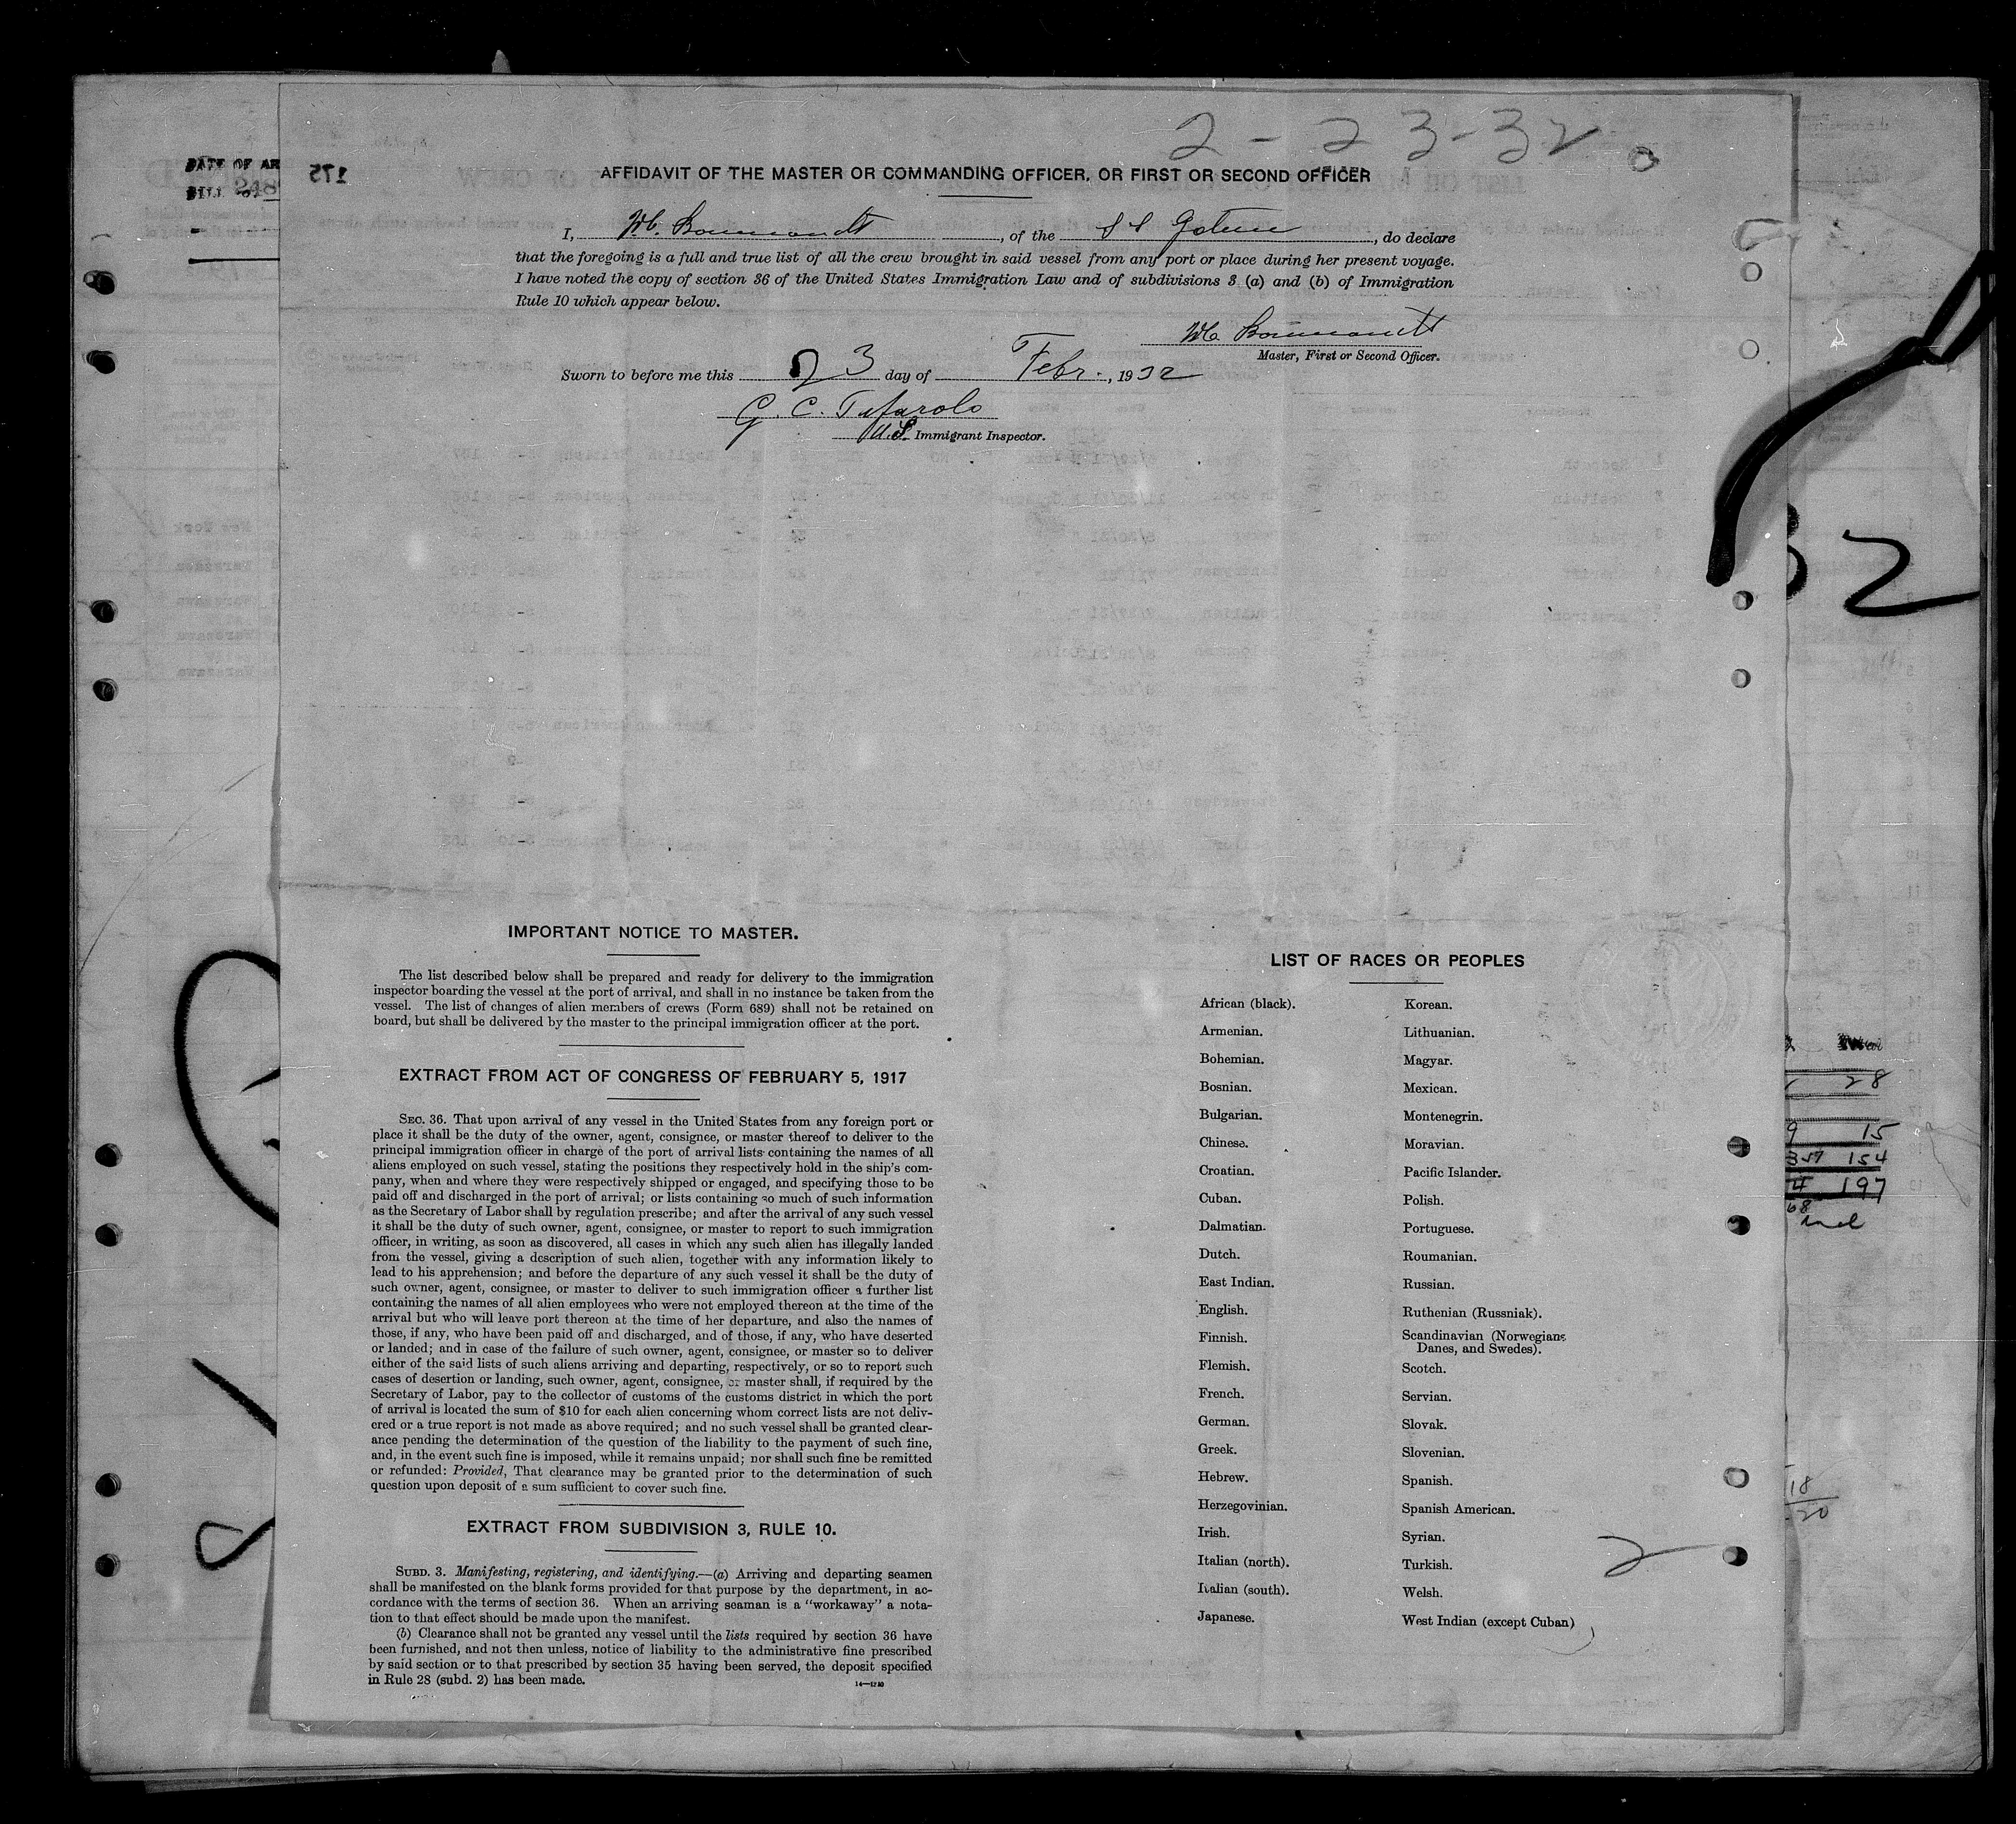 2-23-32
DATE OF AR
BILL OF 248
175
AFFIDAVIT OF THE MASTER OR COMMANDING OFFICER, OR FIRST OR SECOND OFFICER
I, , of the S S , do declare
that the foregoing is a full and true list of all the crew brought in said vessel from any port or place during her present voyage.
I have noted the copy of section 36 of the United States Immigration Law and of subdivisions 3 (a) and (b) of Immigration
Rule 10 which appear below.
Master, First or Second Officer.
Sworn to before me this 23 day of Febr., 1932
G. C.
U.S. Immigrant Inspector.
32
IMPORTANT NOTICE TO MASTER.
The list described below shall be prepared and ready for delivery to the immigration
inspector boarding the vessel at the port of arrival, and shall in no instance be taken from the
vessel. The list of changes of alien members of crews (Form 689) shall not be retained on
board, but shall be delivered by the master to the principal immigration officer at the port.
EXTRACT FROM ACT OF CONGRESS OF FEBRUARY 5, 1917
SEC. 36. That upon arrival of any vessel in the United States from any foreign port or
place it shall be the duty of the owner, agent, consignee, or master thereof to deliver to the
principal immigration officer in charge of the port of arrival lists containing the names of all
aliens employed on such vessel, stating the positions they respectively hold in the ship's com-
pany, when and where they were respectively shipped or engaged, and specifying those to be
paid off and discharged in the port of arrival; or lists containing so much of such information
as the Secretary of Labor shall by regulation prescribe; and after the arrival of any such vessel
it shall be the duty of such owner, agent, consignee, or master to report to such immigration
officer, in writing, as soon as discovered, all cases in which any such alien has illegally landed
from the vessel, giving a description of such alien, together with any information likely to
lead to his apprehension; and before the departure of any such vessel it shall be the duty of
such owner, agent, consignee, or master to deliver to such immigration officer a further list
containing the names of all alien employees who were not employed thereon at the time of the
arrival but who will leave port thereon at the time of her departure, and also the names of
those, if any, who have been paid off and discharged, and of those, if any, who have deserted
or landed; and in case of the failure of such owner, agent, consignee, or master so to deliver
either of the said lists of such aliens arriving and departing, respectively, or so to report such
cases of desertion or landing, such owner, agent, consignee, or master shall, if required by the
Secretary of Labor, pay to the collector of customs of the customs district in which the port
of arrival is located the sum of $10 for each alien concerning whom correct lists are not deliv-
ered or a true report is not made as above required; and no such vessel shall be granted clear-
ance pending the determination of the question of the liability to the payment of such fine,
and, in the event such fine is imposed, while it remains unpaid; nor shall such fine be remitted
or refunded: Provided, That clearance may be granted prior to the determination of such
question upon deposit of a sum sufficient to cover such fine.
EXTRACT FROM SUBDIVISION 3, RULE 10.
SUBD. 3. Manifesting, registering, and identifying.—(a) Arriving and departing seamen
shall be manifested on the blank forms provided for that purpose by the department, in ac-
cordance with the terms of section 36. When an arriving seaman is a "workaway" a nota-
tion to that effect should be made upon the manifest.
(b) Clearance shall not be granted any vessel until the lists required by section 36 have
been furnished, and not then unless, notice of liability to the administrative fine prescribed
by said section or to that prescribed by section 35 having been served, the deposit specified
in Rule 28 (subd. 2) has been made.
LIST OF RACES OR PEOPLES
African (black).
Armenian.
Bohemian.
Bosnian.
Bulgarian.
Chinese.
Croatian.
Cuban.
Dalmatian.
Dutch.
East Indian.
English.
Finnish.
Flemish.
French.
German.
Greek.
Hebrew.
Herzegovinian.
Irish.
Italian (north).
Italian (south).
Japanese.
Korean.
Lithuanian.
Magyar.
Mexican.
Montenegrin.
Moravian.
Pacific Islander.
Polish.
Portuguese.
Roumanian.
Russian.
Ruthenian (Russniak).
Scandinavian (Norwegians,
Danes, and Swedes).
Scotch.
Servian.
Slovak.
Slovenian.
Spanish.
Spanish American.
Syrian.
Turkish.
Welsh.
West Indian (except Cuban)
2
28
9 15
357 154
4 197
68
18
20